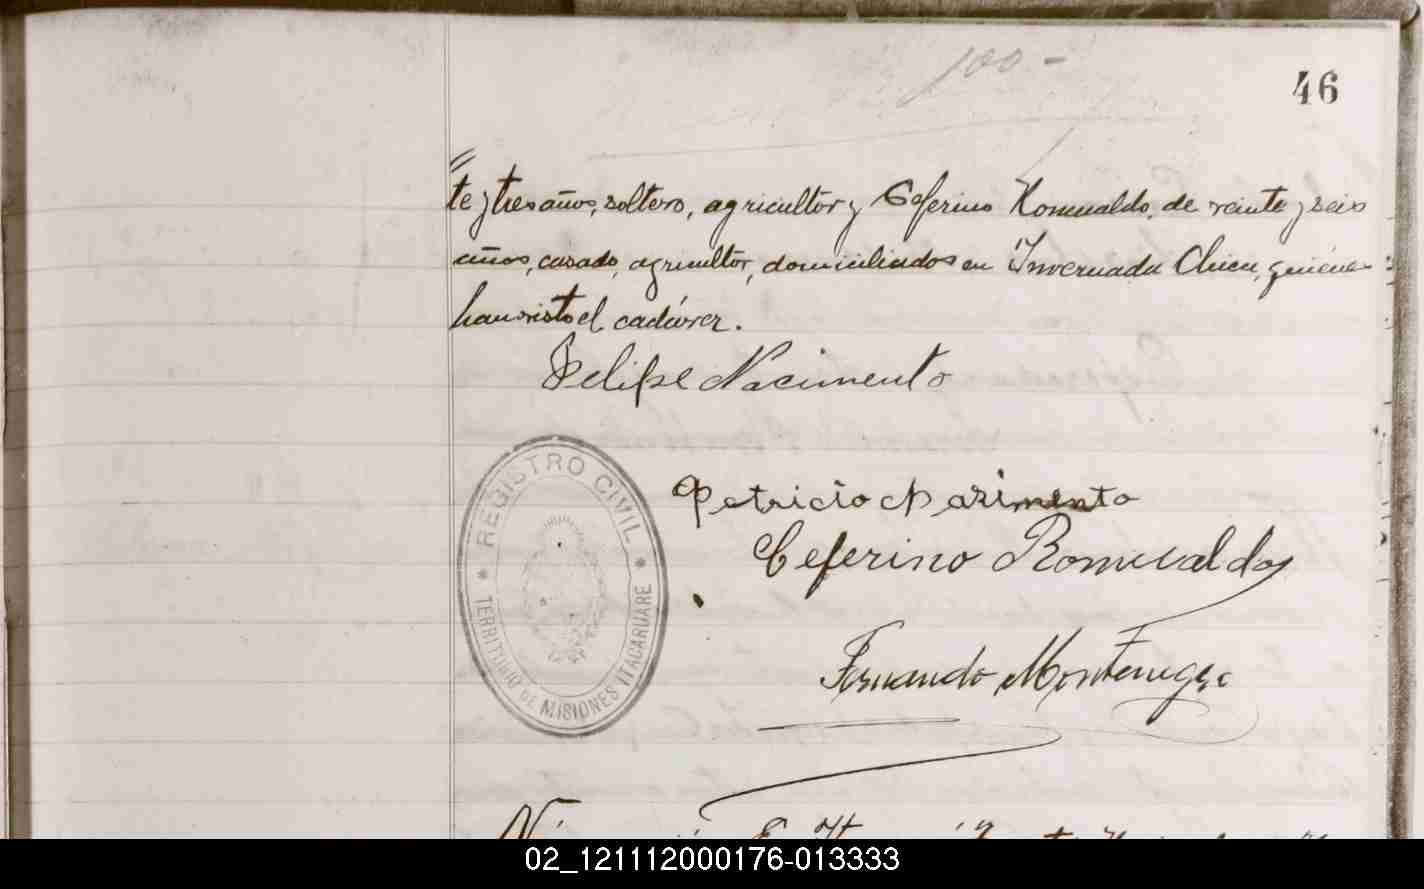 100-
46
te y tres años, soltero, agricultor y Ceferino Romualdo, de veinte y seis
años, casado, agricultor, domiciliados en Invernada Chica, quienes
han visto el cadáver.
Felipe Nacimento
Patricio Nasimento
Ceferino Romualdo
REGISTRO CIVIL
TERRITORIO DE MISIONES ITACARUARE
Fernando Montenegro
02_121112000176-013333